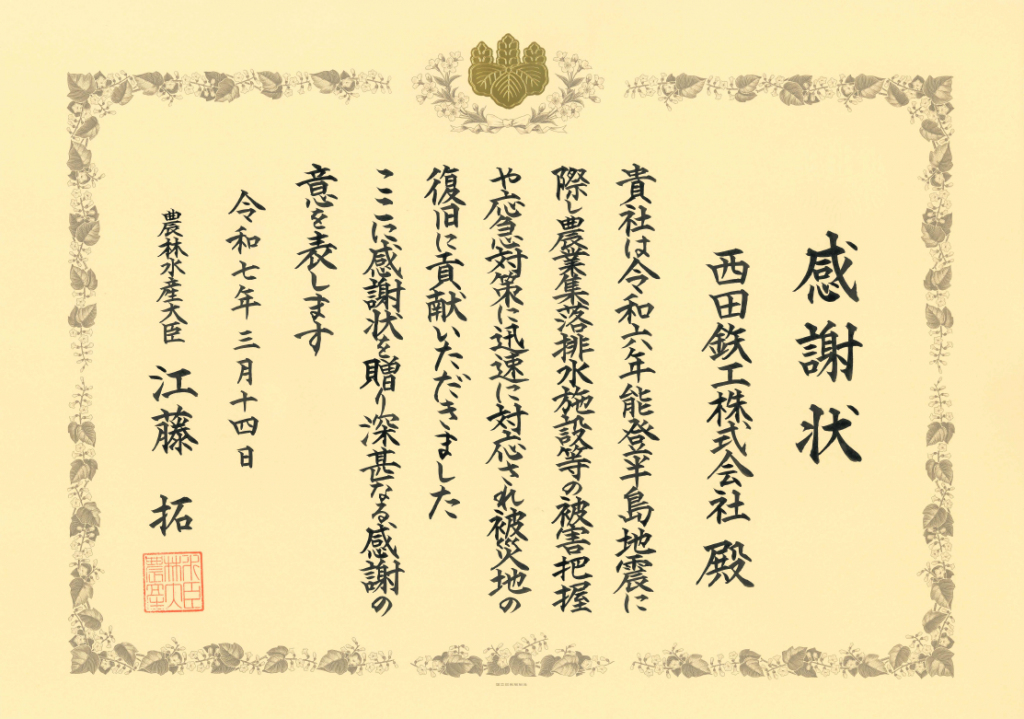 感謝状
西田鉄工株式会社 殿
貴社は令和六年能登半島地震に
際し農業集落排水施設等の被害把握
や応急対策に迅速に対応され被災地の
復旧に貢献いただきました
ここに感謝状を贈り深甚なる感謝の
意を表します
令和七年三月十四日
農林水産大臣 江藤 拓